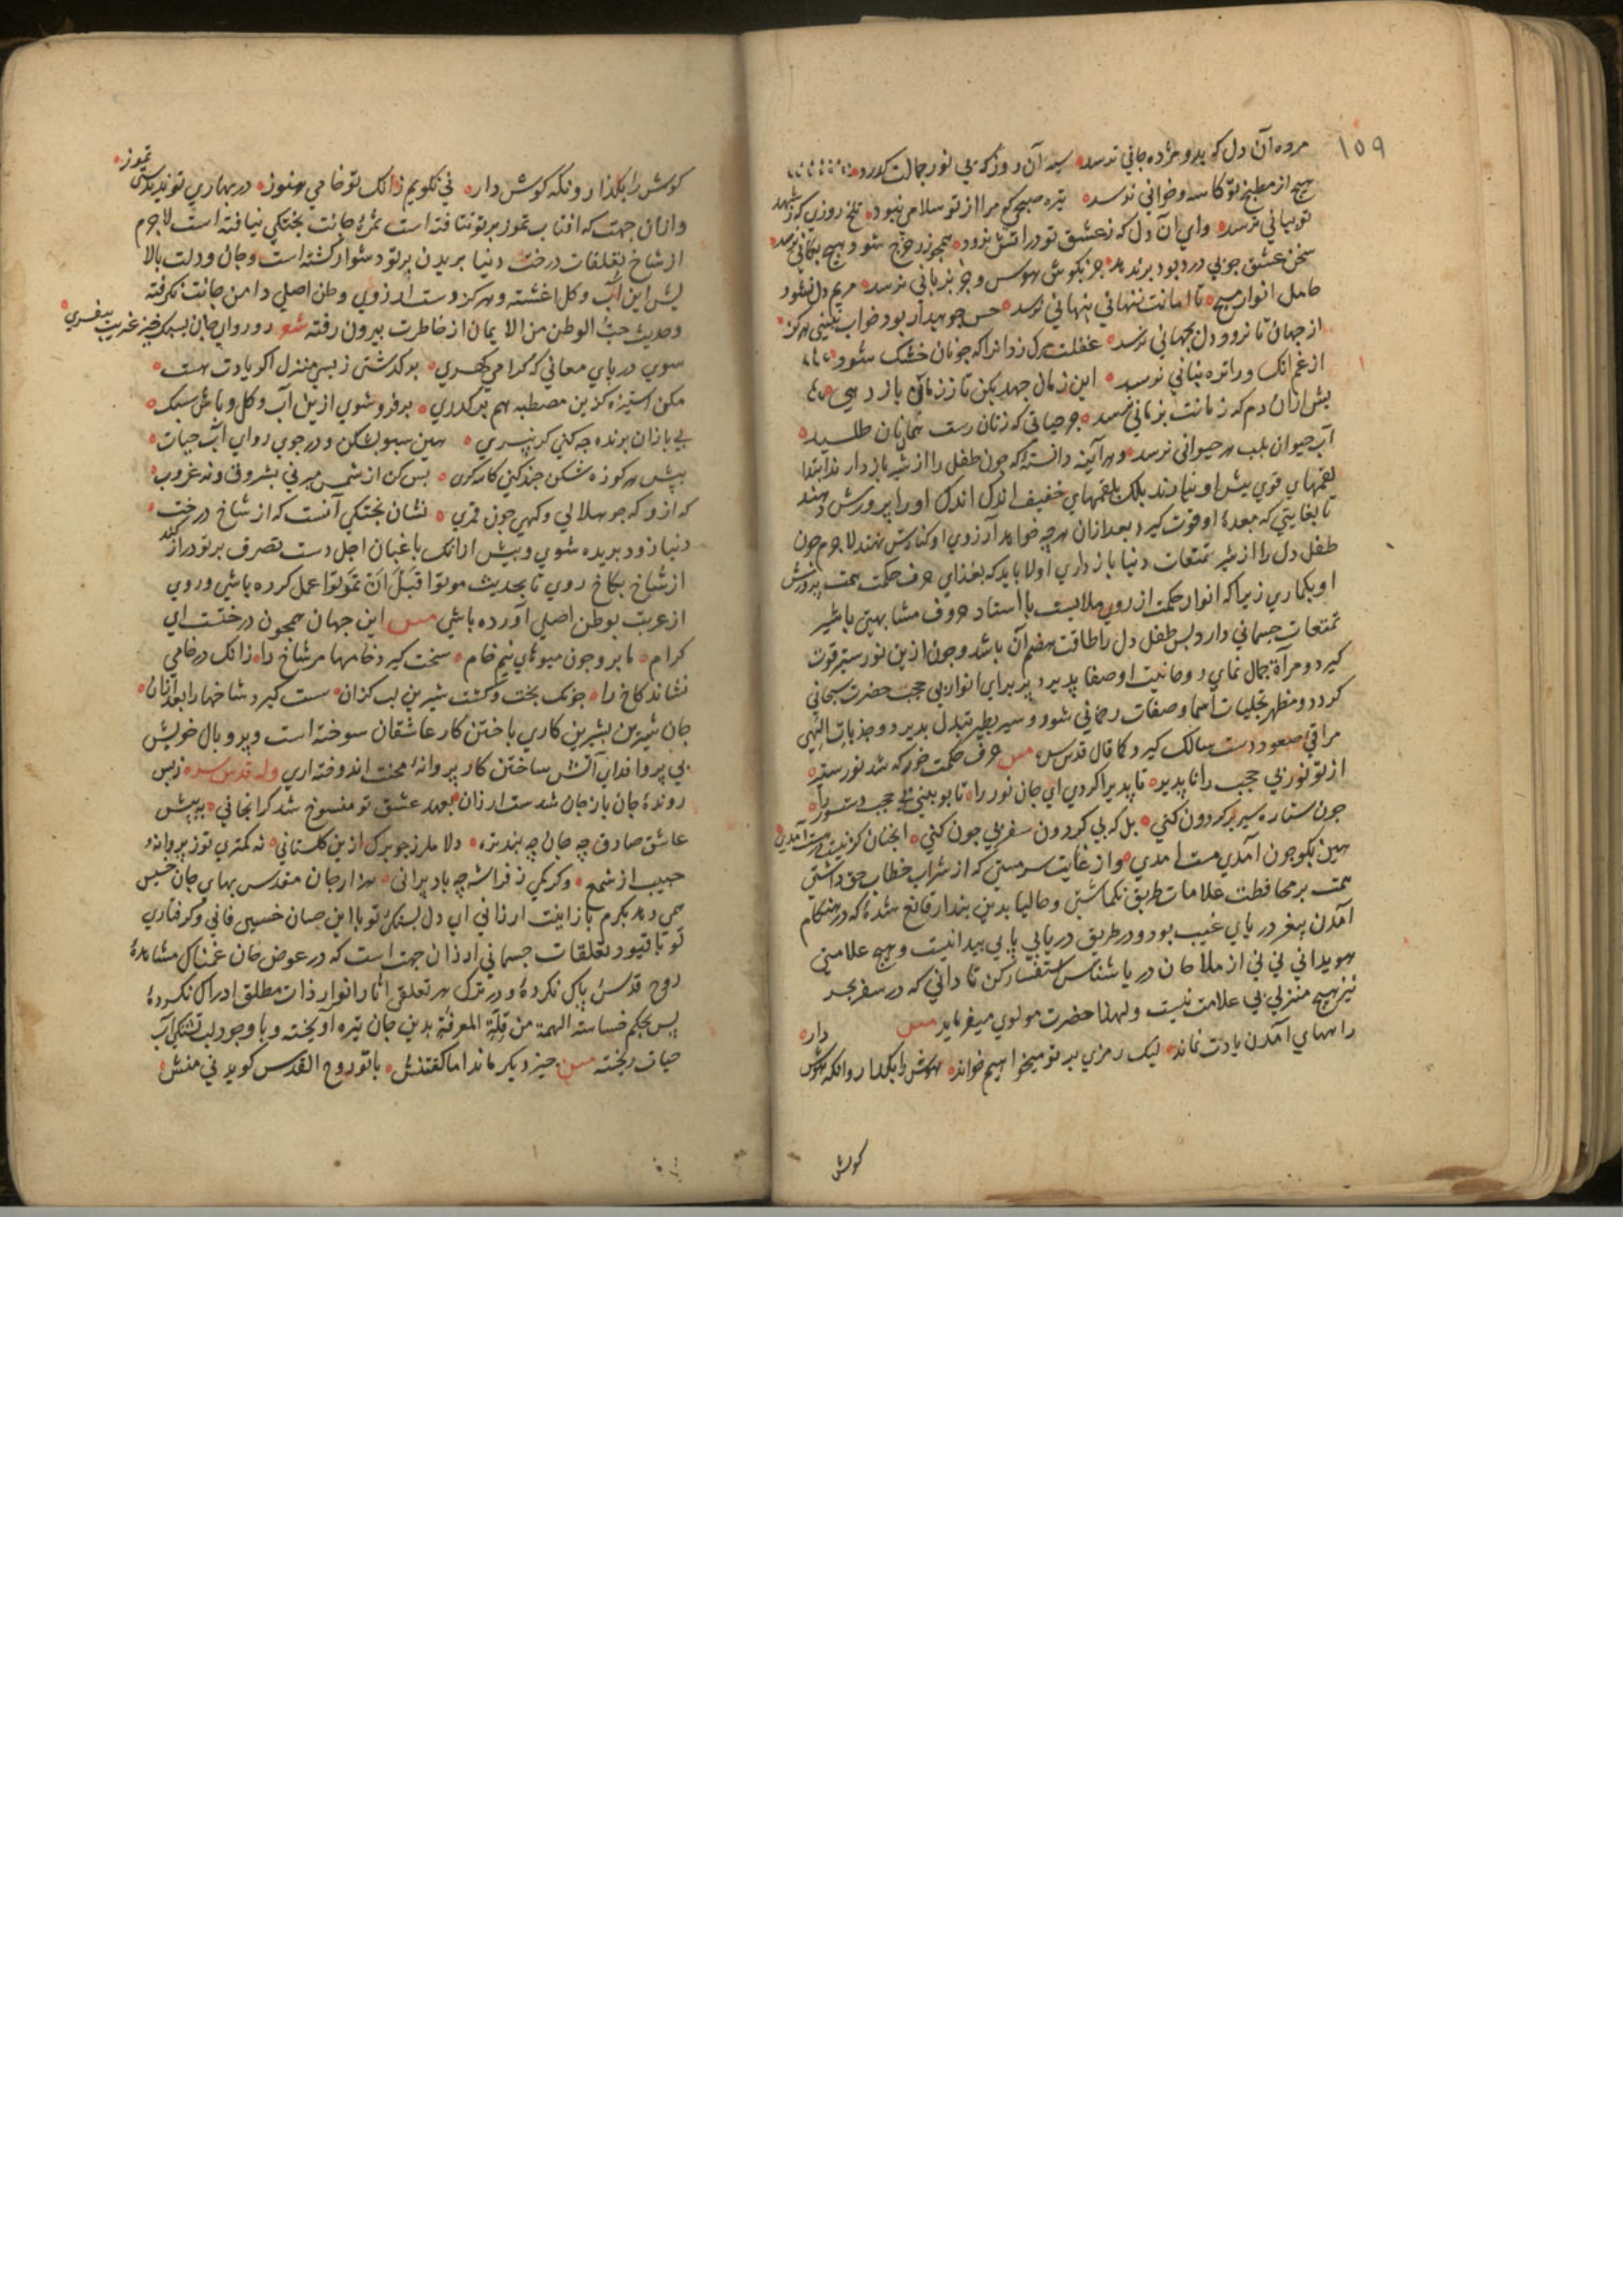 ١٥٩
مرده آن دل که بدو مژده جانی نرسد سیه آن روز که بی نور جمالت گذرد
هیچ از مطبخ تو کاسه و خوانی نرسد تیره صبحی که مرا از تو سلامی نبود تلخ روزی که ز شهد
تو بیانی نرسد وای آن دل که ز عشق تو در آتش نرود همچو زر خرج شود و هیچ بکانی نرسد
سخن عشق چو بی درد بود بر ندهد جز بکوش هوس و جز بزبانی نرسد مریم دل نشود
حامل انوار مسیح تا امانت ز نهانی بنهانی نرسد حس چو بیدار بود خواب نبینی هرکز
از جهان تا نرود دل بجهانی نرسد غفلت مرک زد آنرا که چو نان خشک شود
از غم آنک ورا تره بنانی نرسد این زمان جهد بکن تا ز زمان باز رهی
پیش ازان دم که زمانت بزمانی نرسد هر حیاتی که ز نان رست همان نان طلبد
آب حیوان بلب هر حیوانی نرسد و هر آینه دانسته که چون طفل را از شیر باز دارند ابتدا
لقمهای قوی پیش او نیارند بلک بلقمهای خفیف اندک اندک او را پرورش دهند
تا بغایتی که معده او قوت کیرد بعد ازان هرچه خواهد آرزوی او کنارش نهند لاجرم چون
طفل دل را از شیر تمتعات دنیا باز داری اولا باید که بغذای حرف حکمت همت پرورش
او بکماری زیرا که انوار حکمت از روی ملابست با استار حروف مشابهتی با شیر
تمتعات جسمانی دارد پس طفل دل را طاقت هضم آن باشد و چون ازین نور ستیر قوت
کیرد و مرآة جمال نمای روحانیت او صفا پذیرد پذیرای انوار بی حجب حضرت سبحانی
کردد و مظهر تجلیات اسما و صفات رحمانی شود و سیر بطیر تبدل پذیرد و جذبات الهی
مراقی صعود دست سالک کیرد کما قال قدس سره مس حرف حکمت خور که شد نور ستیر
ای تو نور بی حجب را ناپذیر تا پذیرا کردی ای جان نور را تا ببینی بی حجب مستور را
چون ستاره سیر بر کردون کنی بل که بی کردون سفر بی چون کنی آنچنان کز نیست در هست آمدی
هین بکو چون آمدی مست آمدی و از غایت سرمستی که از شراب خطاب حق داشتی
همت بر محافظت علامات طریق نکماشتی و حالیا بدین پندار قانع شده که در هنکام
آمدن سفر در یای غیب بود و در طریق دریایی پایی پیدا نیست و هیچ علامتی
هویدا نی نی نی از ملاحان دریا شناس استفسار کن تا دانی که در سفر بحر
نیز هیچ منزلی بی علامت نیست و لهذا حضرت مولوی میفرماید مس
راههای آمدن یادت نماند لیک رمزی بر تو میخواهیم خواند هوش را بکذار وانکه هوش دار
کوش
کوش را بکذار وانکه کوش دار نی نکویم زانک تو خامی هنوز در بهاری تو ندیدستی تموز
و ازان جهت که آفتاب تموز بر تو نتافته است ثمره جانت بختکی نیافته است لاجرم
از شاخ تعلقات درخت دنیا بریدن بر تو دشوار کشته است و جان و دلت بالا
پش این آب و کل آغشته و هرکز دست آرزوی وطن اصلی دامن جانت نکرفته
و حدیث حب الوطن من الایمان از خاطرت بیرون رفته شعر رو روای جان سبک خیز غریب سفری
سوی دریای معانی که کرامی کهری بر کذشتی ز بسی منزل اکر یادت هست
مکن استیزه کزین مصطبه هم بر کذری بر فرو شوی ازین آب و کل و باش سبک
پی بازان پرنده چه کنی کر نپری هین سبو بشکن و در جوی رو ای آب حیات
پیش هر کوزه شکن چند کنی کاسه کری بس کن از شمس مبر نی بشروق و نه غروب
که ازو که چو هلالی و کهی چون قمری نشان پختکی آنست که از شاخ درخت
دنیا زود بریده شوی و پیش ازانک باغبان اجل دست تصرف بر تو دراز کند
از شاخ بکاخ روی تا بحدیث موتوا قبل ان تموتوا عمل کرده باشی و روی
از غربت بوطن اصلی آورده باشی مس این جهان همچون درختست ای
کرام ما برو چون میوهای نیم خام سخت کیرد خامها مر شاخ را زانک در خامی
نشاید کاخ را چونک پخت و کشت شیرین لب کزان سست کیرد شاخها را بعد ازان
جان شیرین بشیرین کاری باختن کار عاشقان سوخته است و پر و بال خویش
بی پروا فدای آتش ساختن کار پروانه محنت اندوخته اری وله قدس سره زبس
رونده جان باز جان شدست ارزان بعهد عشق تو منسوخ شد کرانجانی به پیش
عاشق صادق چه جان چه بند تره دلا ملرز چو برک ازین کلستانی نه کمتری تو ز پروانه و
حبیب از شمع وکر یکی ز فراشه چه باد پرانی هزار جان مقدس بهای جان خسیس
همی دهد بکرم باز اینت ارزانی ای دل بستکی تو با این جهان خسیس فانی و کرفتاری
تو با قیود تعلقات جسمانی از آن جهت است که در عوض جان غمناک مشاهده
روح قدس پاک نکرده و در ترک هر تعلقی آثار انوار ذات مطلق ادراک نکرده
پس بحکم خساسته الهمة من قلة المعرفة بدین جان تیره آویخته و با وجود لب تشنکی آب
حیات ریخته مس چیز دیکر ماند اما کفتنش با تو روح القدس کوید نی منش